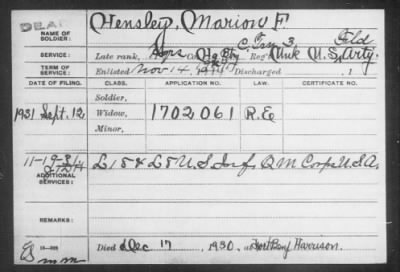 DEAD
Hensley, Marion F.
NAME OF SOLDIER:
C. Trn 3 Field
SERVICE: Late rank, Co. Reg't U.S. Arty.
TERM OF SERVICE: Enlisted Nov 14, Discharged , 1
DATE OF FILING. CLASS. APPLICATION NO. LAW. CERTIFICATE NO.
Soldier,
1931 Sept. 12 Widow, 1702061 R.E.
Minor,
11-19-31
ADDITIONAL SERVICES: L 15 & L 5 U.S. Inf. Q M Corps U.S.A.
Died Dec 17, 1930, at Fort Benj Harrison.
mm